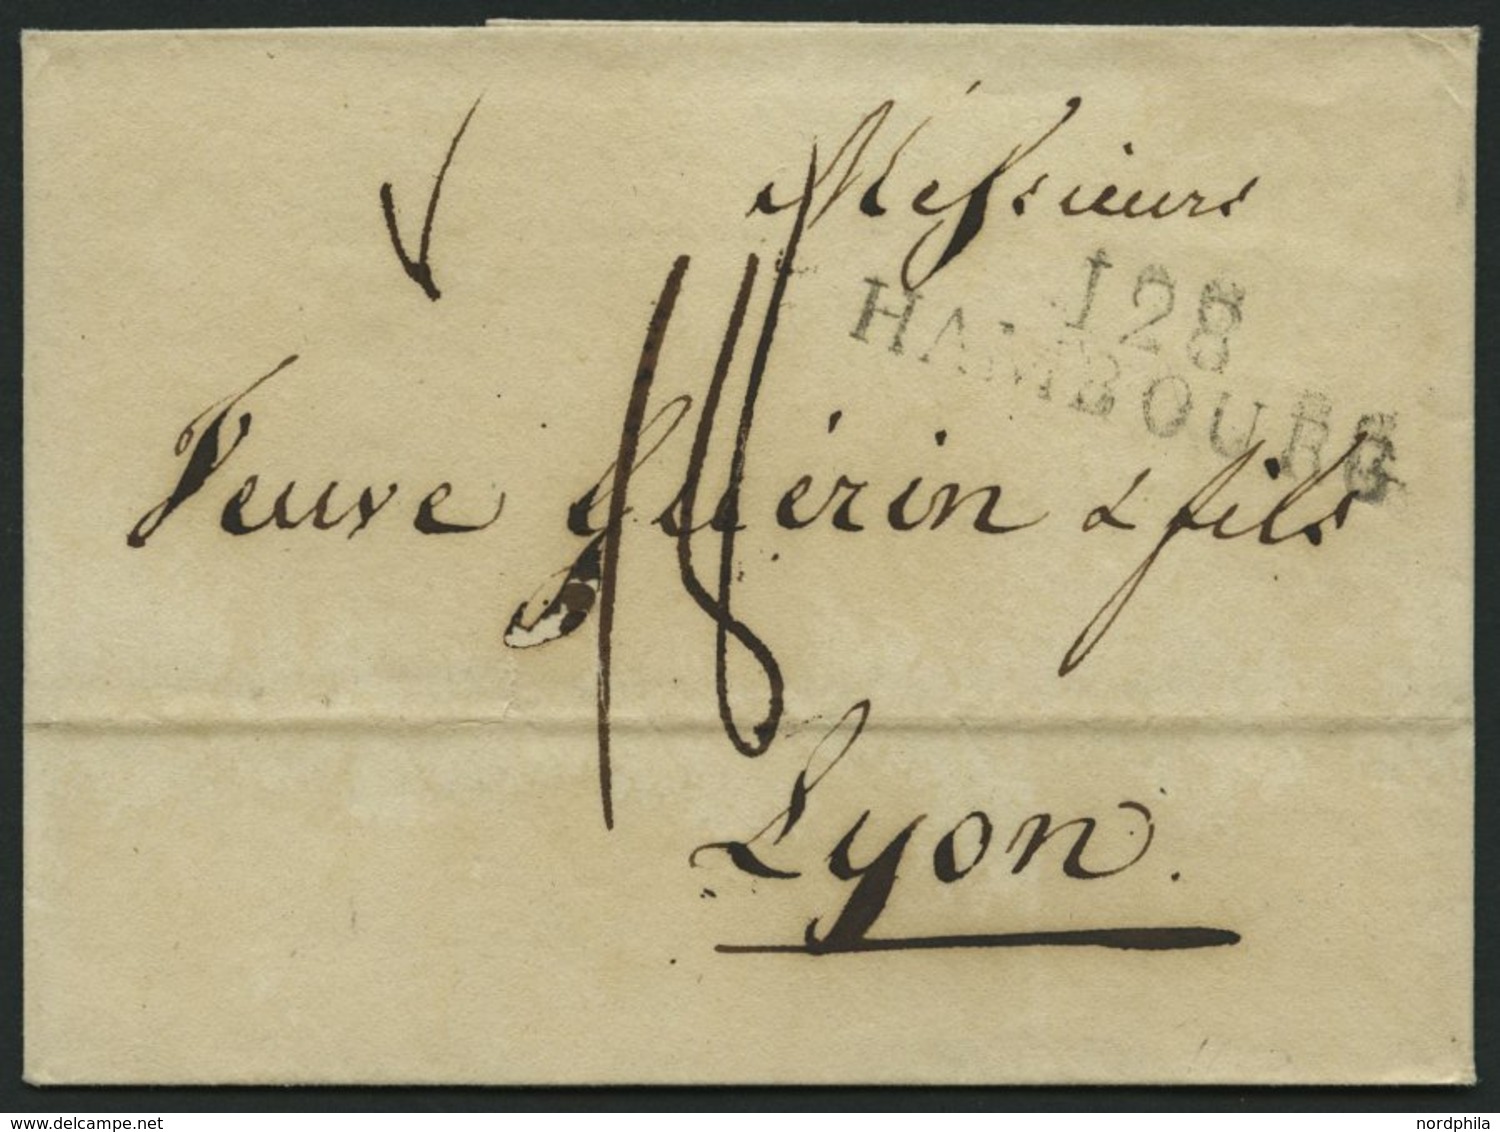 Messieurs
128
HAMBOURG
Veuve Guérin & fils
18
Lyon.
nordphila
www.delcampe.net